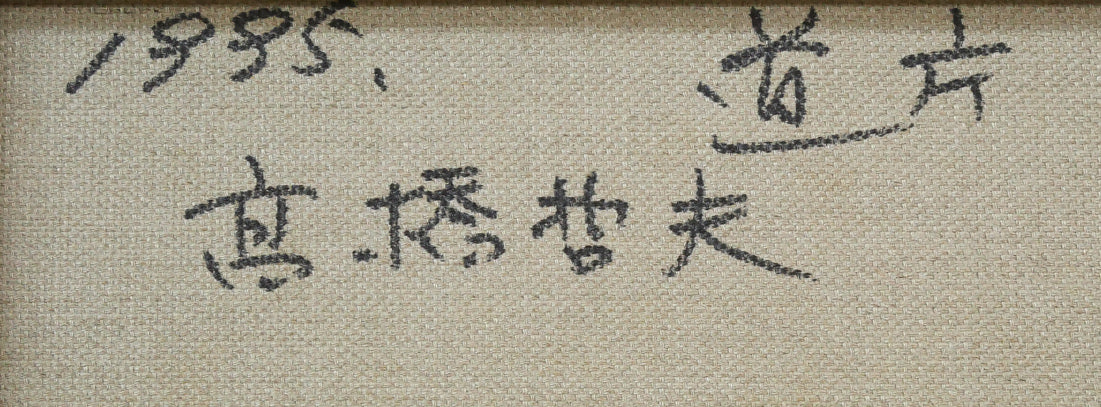 1995. 道片
髙橋哲夫